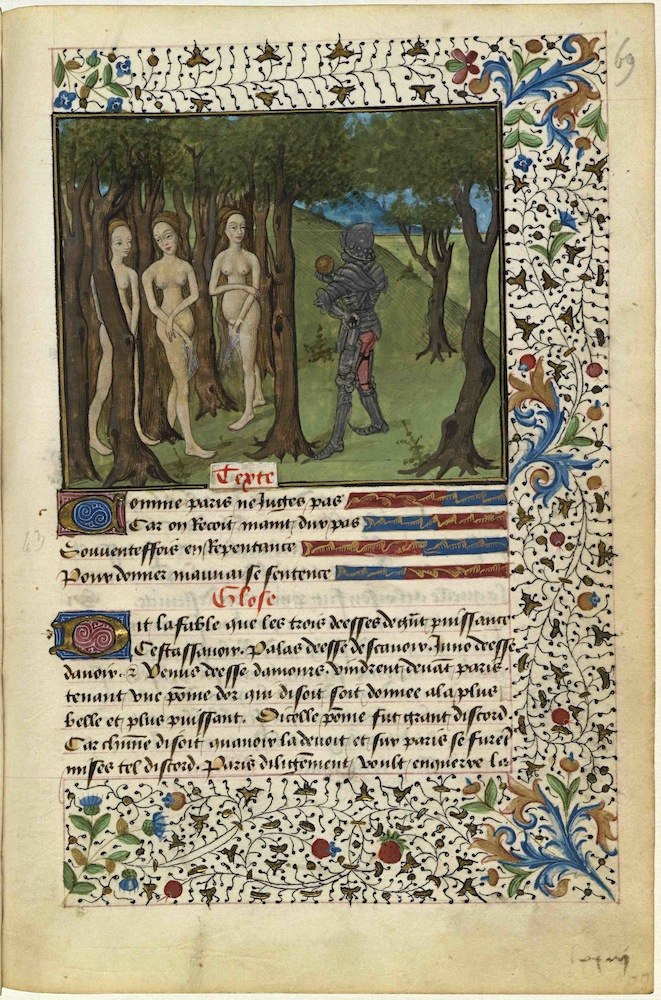 69
Texte
Comme paris ne Juges pas
Car on Recoit maint dur pas
Souventeffois en Repentance
Pour donner mauvaise sentence
Glose
Dit la fable que les trois deesses de grāt puissance
Cestassavoir. Palas deesse de scavoir. Juno deesse
davoir. & Venus deesse damours vindrent devāt paris.
tenant vne pōme dor qui disoit soit donnee ala plus
belle et plus puissant. Dicelle pōme fut grant discord.
Car chūne disoit quavoir la devoit et sur paris se furēt
mises tel discord. Paris diligēment voult enquerre la